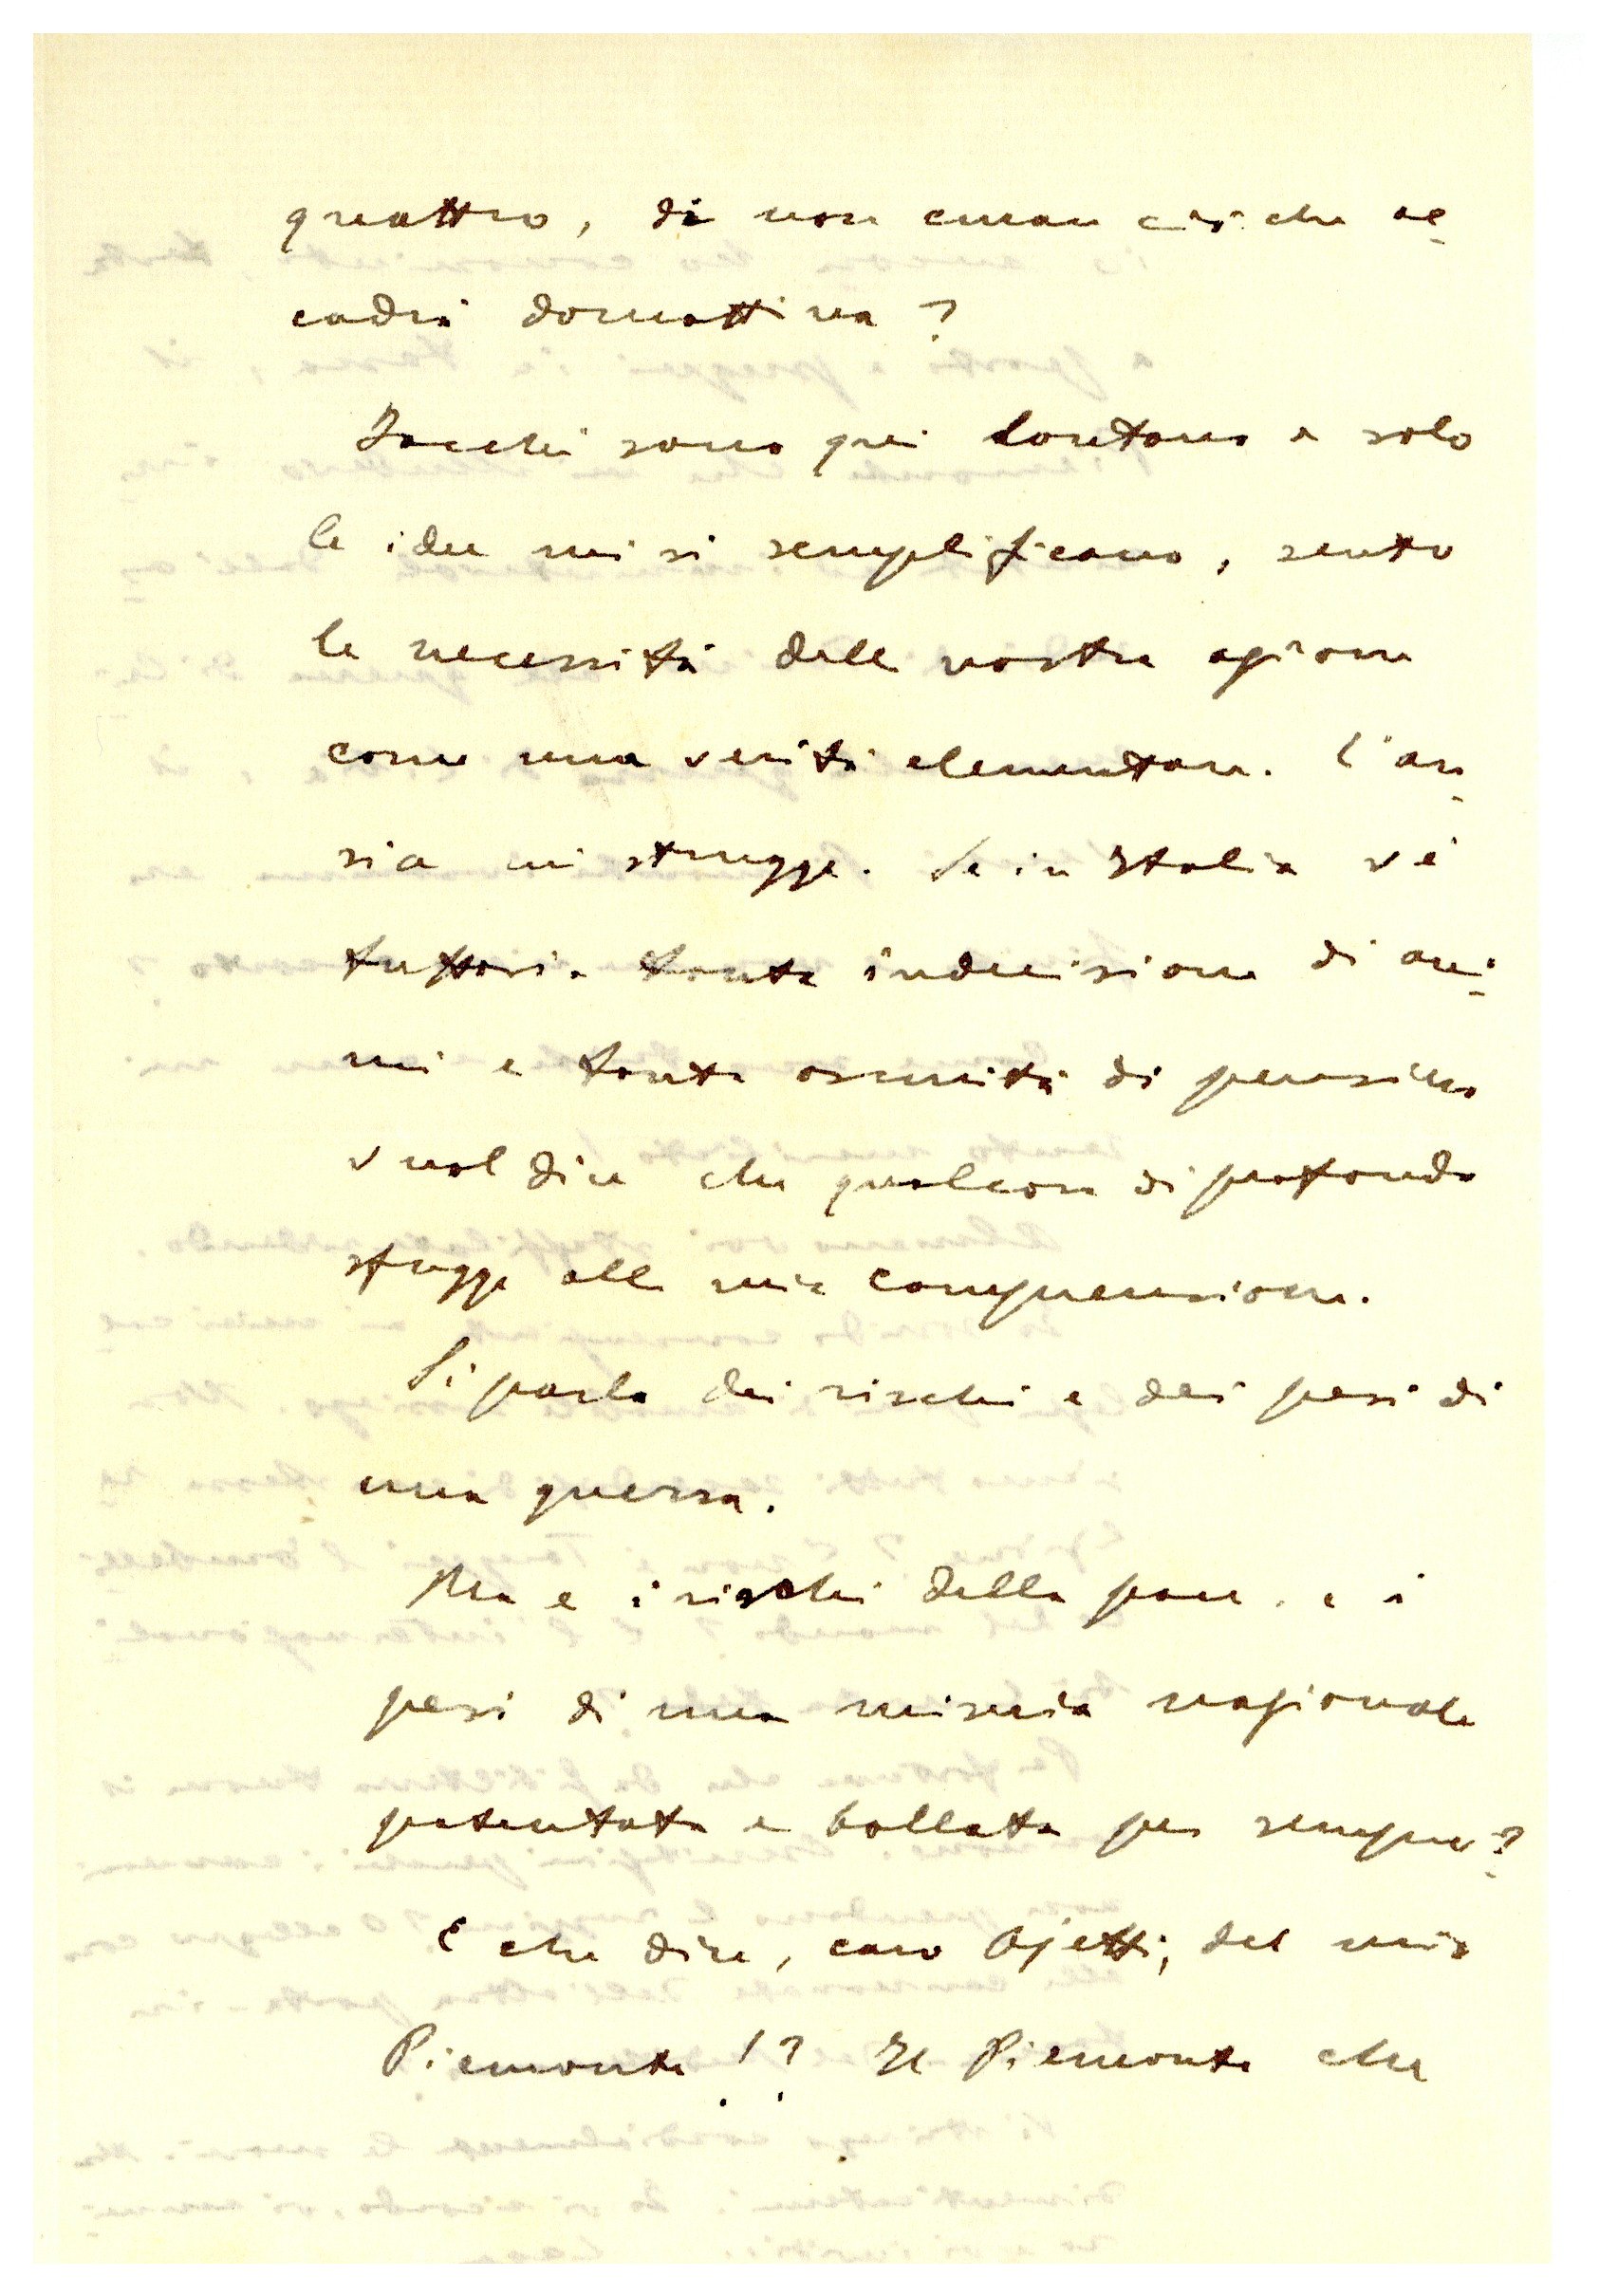 quattro, di non curar ciò che ac
cadrà domattina?
Dacchè sono qui lontano e solo
le idee mi si semplificano, sento
la necessità della nostra azione
come una verità elementare. L'an
sia mi strugge. Se in Italia v'è
tuttavia tanta indecisione di ani
mi e tanta oscurità di pensiero
vuol dire che qualcosa di profondo
sfugge alla mia comprensione.
Si parla dei rischi e dei pesi di
una guerra.
Ma e i rischi della pace, e i
pesi di una miseria nazionale
patentata e bollata per sempre?
E che dire, caro Ojetti, del mio
Piemonte!? Il Piemonte che